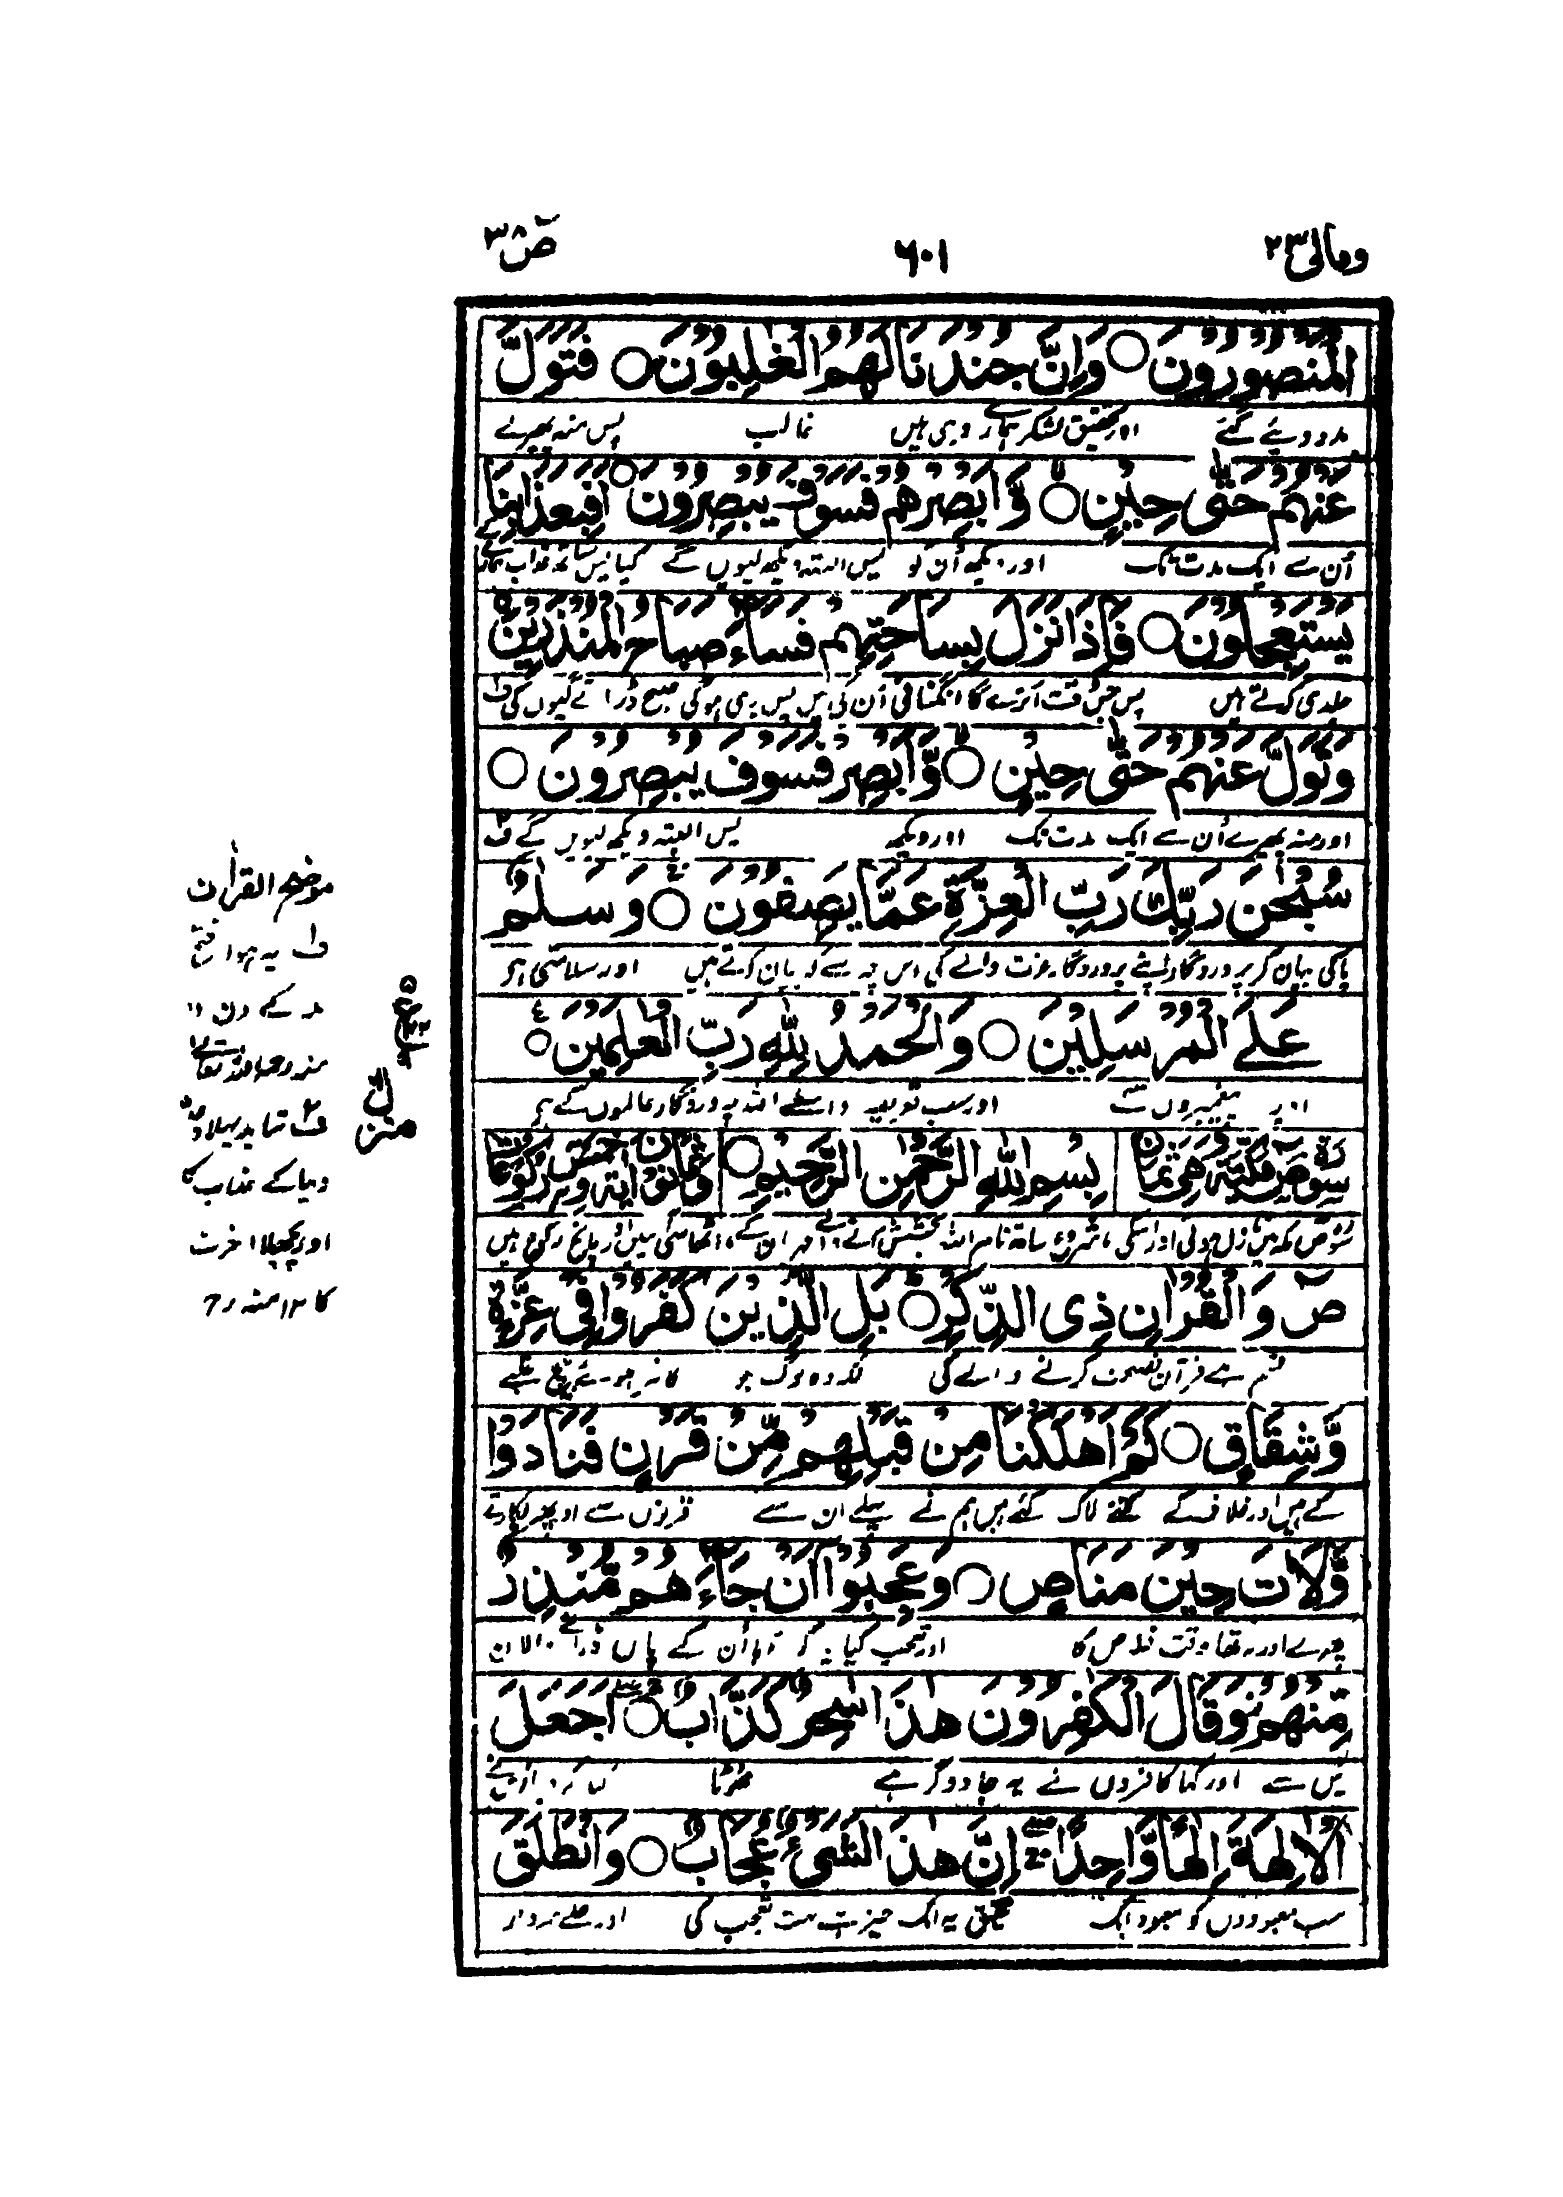 ومالی ٢٣
٦٠١
صٓ ٣٨
الْمَنْصُوْرُوْنَ ○ وَاِنَّ جُنْدَنَا لَهُمُ الْغٰلِبُوْنَ ○ فَتَوَلَّ
مدد دیئے گئے اور تحقیق لشکر ہمارے وہی ہیں غالب پس منہ پھیرلے
عَنْهُمْ حَتّٰى حِيْنٍ ○ وَّاَبْصِرْهُمْ فَسَوْفَ يُبْصِرُوْنَ ○ اَفَبِعَذَابِنَا
اُن سے ایک مدت تک اور دیکھ اُن کو پس البتہ دیکھ لیویں گے کیا پس ساتھ عذاب ہمارے کے
يَسْتَعْجِلُوْنَ ○ فَاِذَا نَزَلَ بِسَاحَتِهِمْ فَسَآءَ صَبَاحُ الْمُنْذَرِيْنَ
جلدی کرتے ہیں پس جس وقت اترے گا انگنائی اُن کی میں پس بری ہوگی صبح ڈرائے گیوں کی ف۱
وَتَوَلَّ عَنْهُمْ حَتّٰى حِيْنٍ ○ وَّاَبْصِرْ فَسَوْفَ يُبْصِرُوْنَ ○
اور منہ پھیرلے اُن سے ایک مدت تک اور دیکھ پس البتہ دیکھ لیویں گے ف۲
سُبْحٰنَ رَبِّكَ رَبِّ الْعِزَّةِ عَمَّا يَصِفُوْنَ ○ وَسَلٰمٌ
پاکی بیان کر پروردگار اپنے پروردگار عزت والے کی اس چیز سے کہ بیان کرتے ہیں اور سلامتی ہے
عَلَى الْمُرْسَلِيْنَ ○ وَالْحَمْدُ لِلّٰهِ رَبِّ الْعٰلَمِيْنَ ○
اوپر پیغمبروں کے اور سب تعریف واسطے اللہ پروردگار عالموں کے ہے
سُوْرَةُ صٓ مَكِّيَّةٌ وَّهِيَ ثَمَانٌ بِسْمِ اللّٰهِ الرَّحْمٰنِ الرَّحِيْمِ ○ وَّثَمَانُوْنَ اٰيَةً وَّخَمْسُ رُكُوْعَاتٍ
صٓ وَالْقُرْاٰنِ ذِى الذِّكْرِ ○ بَلِ الَّذِيْنَ كَفَرُوْا فِيْ عِزَّةٍ
قسم ہے قرآن نصیحت کرنے والے کی بلکہ وہ لوگ جو کافر ہوئے بیچ غلبے
وَّشِقَاقٍ ○ كَمْ اَهْلَكْنَا مِنْ قَبْلِهِمْ مِّنْ قَرْنٍ فَنَادَوْا
کے ہیں اور خلاف کے کتنے ہلاک کئے ہیں ہم نے پہلے ان سے قرنوں سے اور پھر پکارتے
وَّلَاتَ حِيْنَ مَنَاصٍ ○ وَعَجِبُوْٓا اَنْ جَآءَهُمْ مُّنْذِرٌ
اور نہ تھا وقت خلاصی کا اور تعجب کیا یہ کہ آیا اُن کے پاس ڈرانے والا ان
مِّنْهُمْ وَقَالَ الْكٰفِرُوْنَ هٰذَا سٰحِرٌ كَذَّابٌ ○ اَجَعَلَ
میں سے اور کہا کافروں نے یہ جادوگر ہے جھوٹا
الْاٰلِهَةَ اِلٰهًا وَّاحِدًا اِنَّ هٰذَا لَشَيْءٌ عُجَابٌ ○ وَانْطَلَقَ
سب معبودوں کو معبود ایک تحقیق یہ ایک چیز ہے بہت تعجب کی اور چلے سردار
موضح القرآن
ف۱ یہ ہوا فتح
مکہ کے دن ۱۲
منہ رحمہ اللہ تعالیٰ
ف۲ شاید پہلا وعدہ
دنیا کے عذاب کا
اور پچھلا آخرت
کا ١٢ منہ رح
منزل